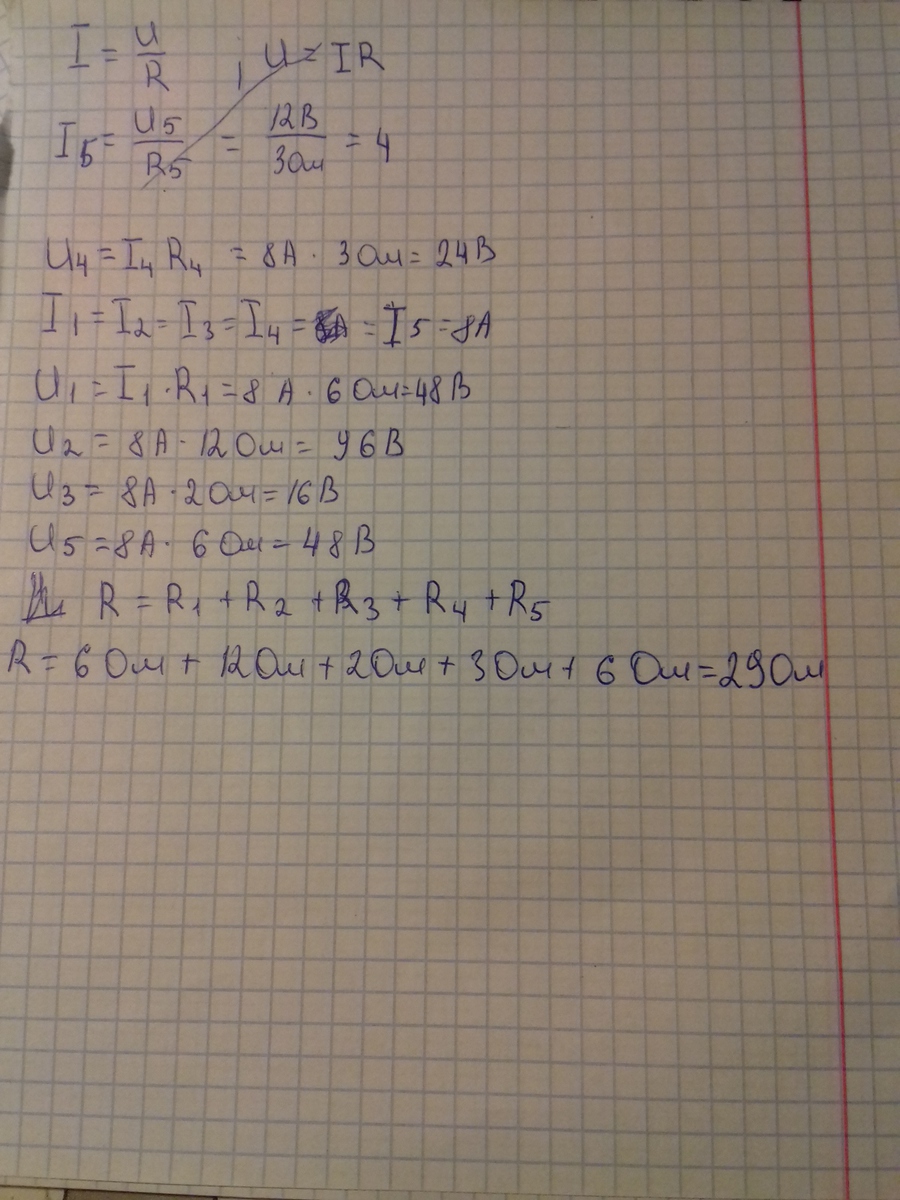 I = U/R , U = IR
I5 = U5/R5 = 12В/3Ом = 4
U4 = I4 R4 = 8А · 3Ом = 24В
I1 = I2 = I3 = I4 = = I5 = 8А
U1 = I1 · R1 = 8 А · 6 Ом = 48В
U2 = 8А · 12 Ом = 96В
U3 = 8А · 2Ом = 16В
U5 = 8А · 6 Ом = 48В
R = R1 + R2 + R3 + R4 + R5
R = 6 Ом + 12Ом + 2Ом + 3Ом + 6 Ом = 29Ом